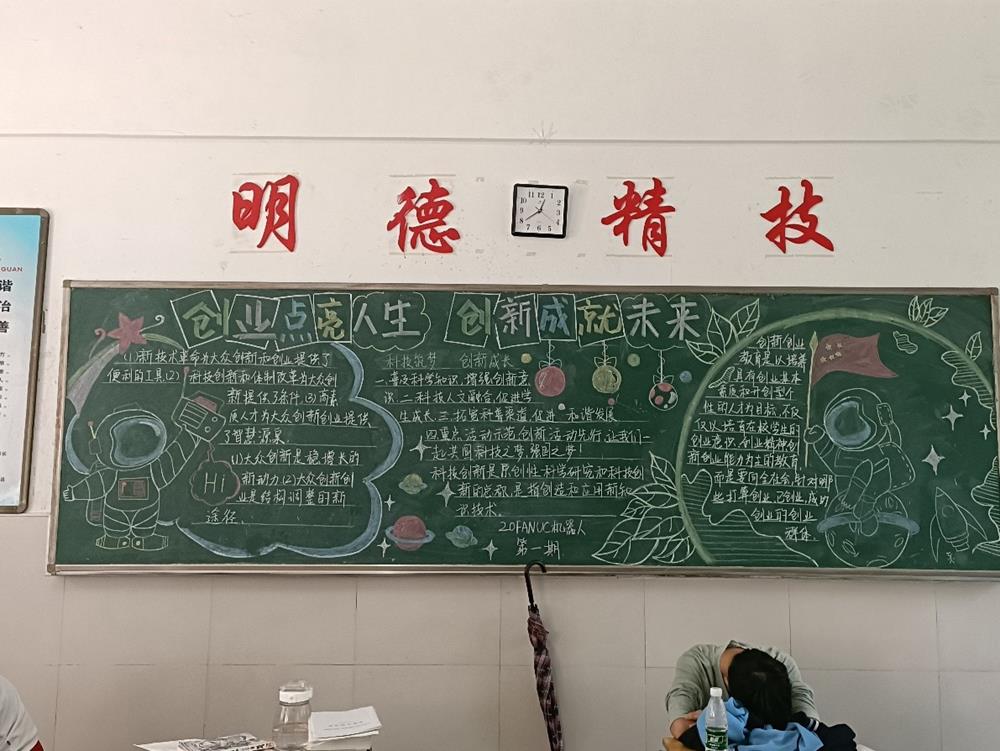 明德精技
GUAN
谐
治
善
12
11
1
10
2
9
3
8
4
7
6
5
创业点亮人生 创新成就未来
(1)新技术革命为大众创新和创业提供了
便利的工具(2) 科技创新和体制改革为大众创
新提供了条件(3)高素
质人才为大众创新创业提供
了智慧源泉
(1)大众创新是稳增长的
新动力(2)大众创新创
业是结构调整的新
途径
Hi
科技筑梦 创新成长
一.普及科学知识,增强创新意
识.二.科技人文融合,促进学
生成长.三.拓宽科普渠道,促进 和谐发展
四.重点活动示范,创新活动先行,让我们一
起共同科技之梦,强国之梦!
科技创新是原创性科学研究和科技创
新的总称,是指创造和应用新知
识技术.
20FANUC机器人
第一期
创新创业
教育是以培养
具有创业基本
素质和开创型个
性的人才为目标,不仅
仅以培育在校学生的
创业意识,创业精神创
新创业能力为主的教育,
而是要向全社会,针对哪
些打算创业,已创业,成功
创业的创业
群体.